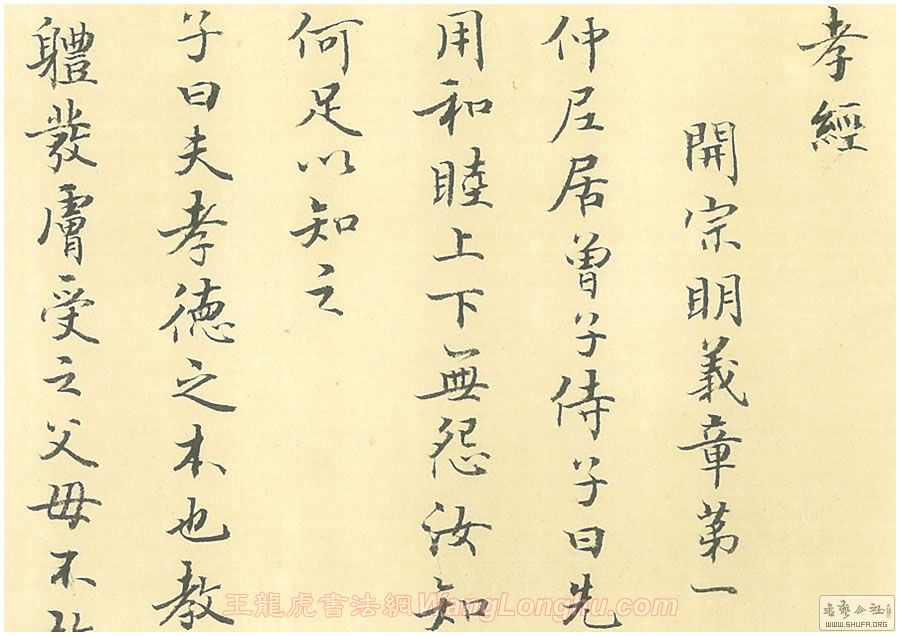 孝經
開宗明義章第一
仲尼居曾子侍子曰先
用和睦上下無怨汝知
何足以知之
子曰夫孝德之本也教
軆發膚受之父母不
王龍虎書法網WangLongHu.com
書藝公社
WWW.SHUFA.ORG